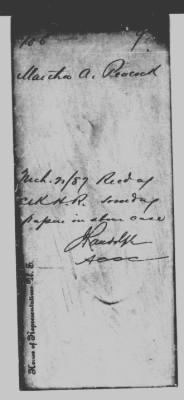 186
Martha A. Peacock
Mch. 2/87 Recd of
Clk H.R. sundry
papers in above case
J Randolph
A C C C
House of Representatives U. S.